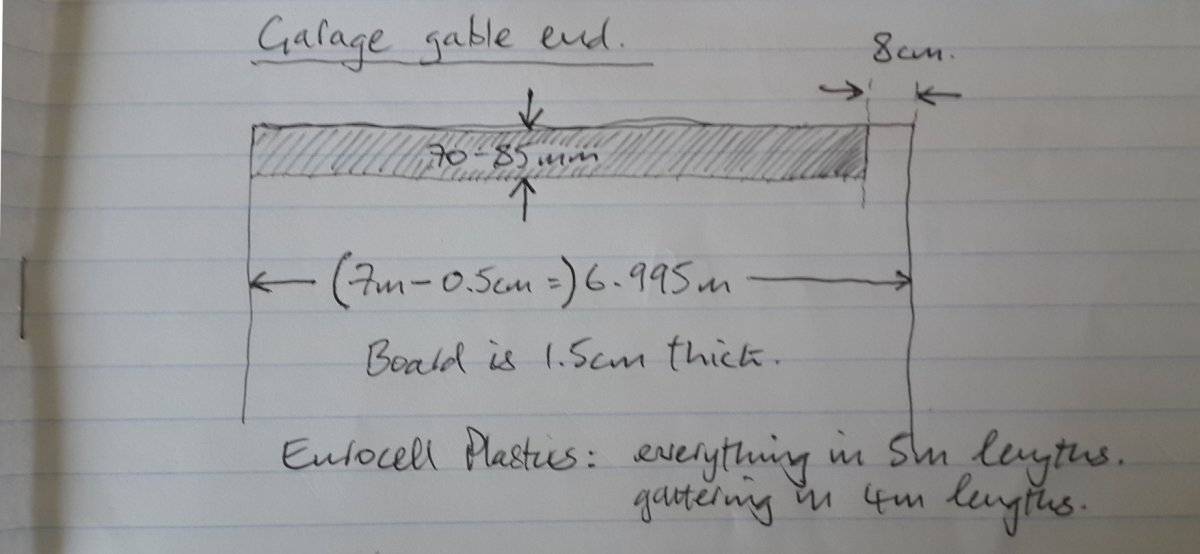 Garage gable end.
8cm.
70-85mm
(7m-0.5cm=) 6.995m
Board is 1.5cm thick.
Eurocell Plastics: everything in 5m lengths.
guttering in 4m lengths.